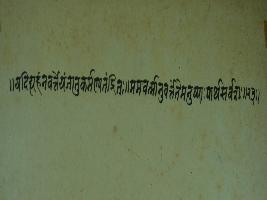 ॥यदिह्यहंनवर्त्तेयंजातुकर्मण्यतंद्रितः॥ममवर्त्मानुवर्त्तंतेमनुष्याःपार्थसर्वशः॥२३॥